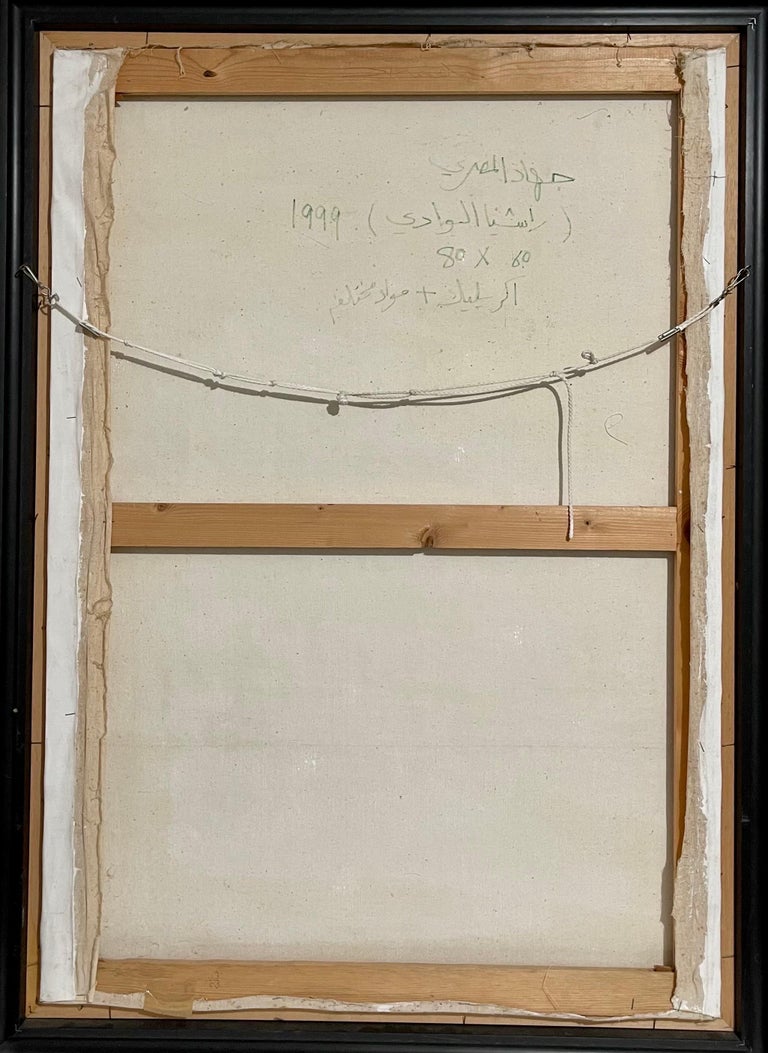 جهاد المصري
(راشيا الوادي) 1999
80 X 60
اكريليك + مواد مختلفة